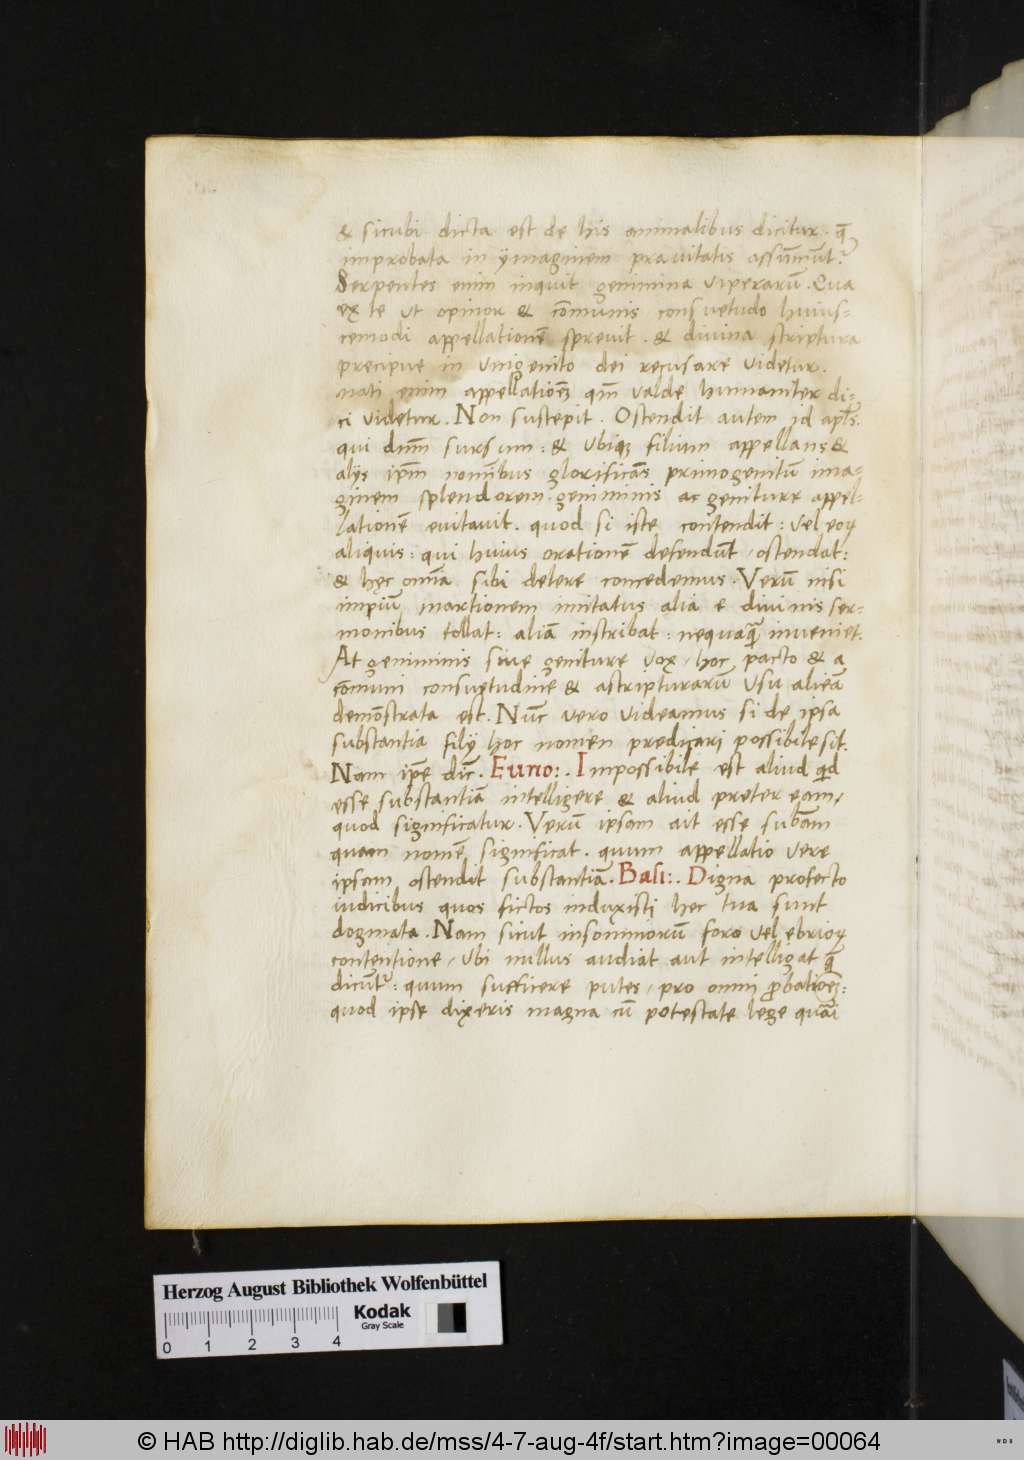 & sicubi dicta est de his animalibus dicitur. q̄
improbata in ymaginem prauitatis assūmūt᷑.
Serpentes enim inquit genimina viperarū. Qua
ex te vt opinor & cōmunis consuetudo huius=
cemodi appellationē spreuit. & diuina scriptura
precipue in vnigenito dei recusare videtur.
nati enim appellationē qm̄ valde humaniter di=
ci videtur. Non suscepit. Ostendit autem id apl̄s.
qui dnm̄ sursum: & vbiqꝫ filium appellans &
alijs ip̄m nomīībus glorificās primogenitū ima=
ginem splendorem. geniminis ac geniture appel=
lationē euitauit. quod si iste contendit: vel eoꝝ
aliquis: qui huius orationē defendūt, ostendat:
& hęc omīa sibi delere concedemus. Verū nisi
impiū martionem imitatus alia e diuinis ser=
monibus tollat: aliā instribat: nequaq̄ inueniet.
At geniminis siue geniture vox, hoc pacto & a
cōmuni consuetudine & ascripturarū vsu alieā
demōstrata est. Nūc vero videamus si de ipsa
substantia filij hoc nomen predicari possibile sit.
Nam ip̄e dic̄. Euno:. Impossibile est aliud qid
esse substantiā intelligere & aliud preter eam,
quod significatur. Verū ipsam ait esse subām
quam nomē significat. quum appellatio vere
ipsam ostendit substantiā. Basi:. Digna profecto
iudicibus quos fictos induxisti hec tua sunt
dogmata. Nam sicut insomniorū foro vel ebrioꝝ
contentione, vbi nullus audiat aut intelligat q̄
dicūt᷑: quum sufficere putes, pro omni ꝓbationē:
quod ipse dixeris magna cū potestate lege quāī
Herzog August Bibliothek Wolfenbüttel
Kodak
Gray Scale
0 1 2 3 4
© HAB http://diglib.hab.de/mss/4-7-aug-4f/start.htm?image=00064